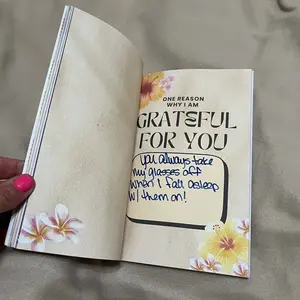 ONE REASON
WHY I AM
GRATEFUL
FOR YOU
you always take
my glasses off
when I fall asleep
w/ them on!